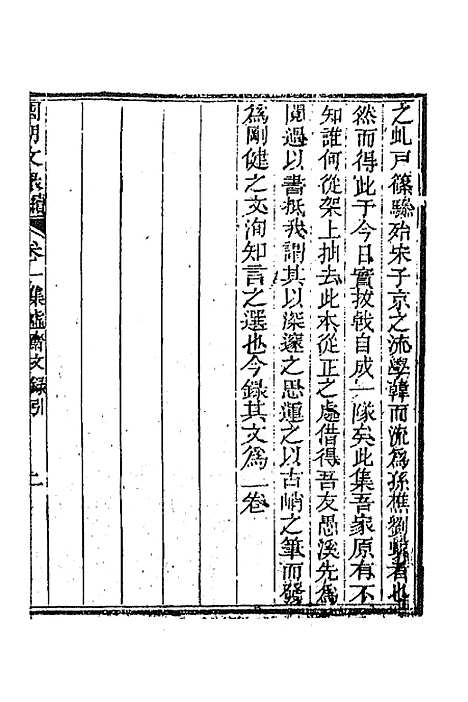 之虬戸篠驂殆宋子京之流學韓而流爲孫樵劉蛻者也
然而得此于今日實拔戟自成一隊矣此集吾家原有不
知誰何從架上抽去此本從正之處借得吾友愚溪先爲
閱過以書抵我謂其以深邃之思運之以古峭之筆而發
爲剛健之文洵知言之選也今錄其文爲一卷
國朝文錄續 卷一 集虛齋文錄引 二